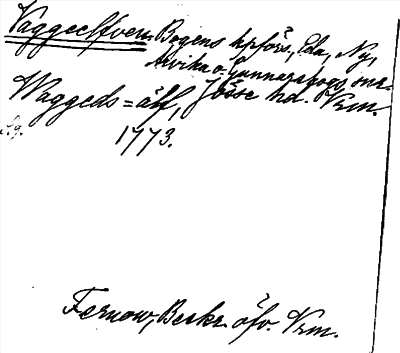 Vaggeelfven Bogens kpförs, Eda, Ny,
Arvika o. Gunnarskogs, snr.
Waggeds=älf, Jösse hd. Vrm.
S.g.
1773.
Fernow, Beskr. öfv. Vrm.